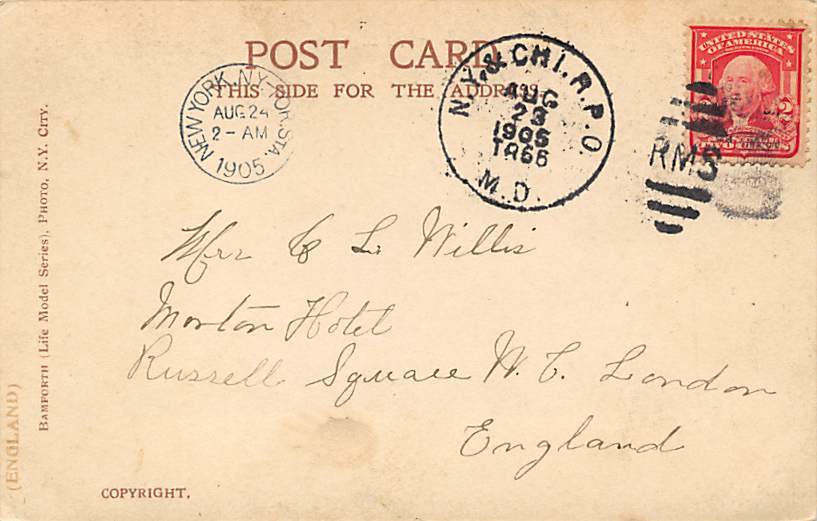 POST CARD
THIS SIDE FOR THE ADDRE
NEW YORK, N.Y. STA.
AUG 24
2 - AM
1905
N.Y. & CHI. R.P.O.
AUG
23
1905
TR66
M.D.
RMS
UNITED STATES
OF AMERICA
2
Mrs C L Willis
Morton Hotel
Russell Square W. C. London
England
BAMFORTH (Life Model Series), PHOTO, N.Y. CITY.
(ENGLAND)
COPYRIGHT.